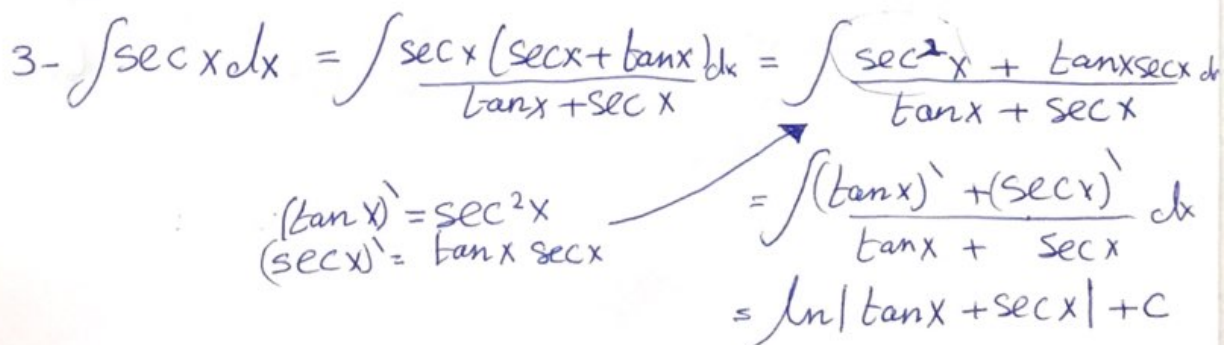 3- ∫sec x dx = ∫ sec x (sec x + tan x) dx / tan x + sec x = ∫ sec² x + tan x sec x dx / tan x + sec x
(tan x)` = sec² x
(sec x)` = tan x sec x
= ∫ (tan x)` + (sec x)` / tan x + sec x dx
= ln | tan x + sec x | + C